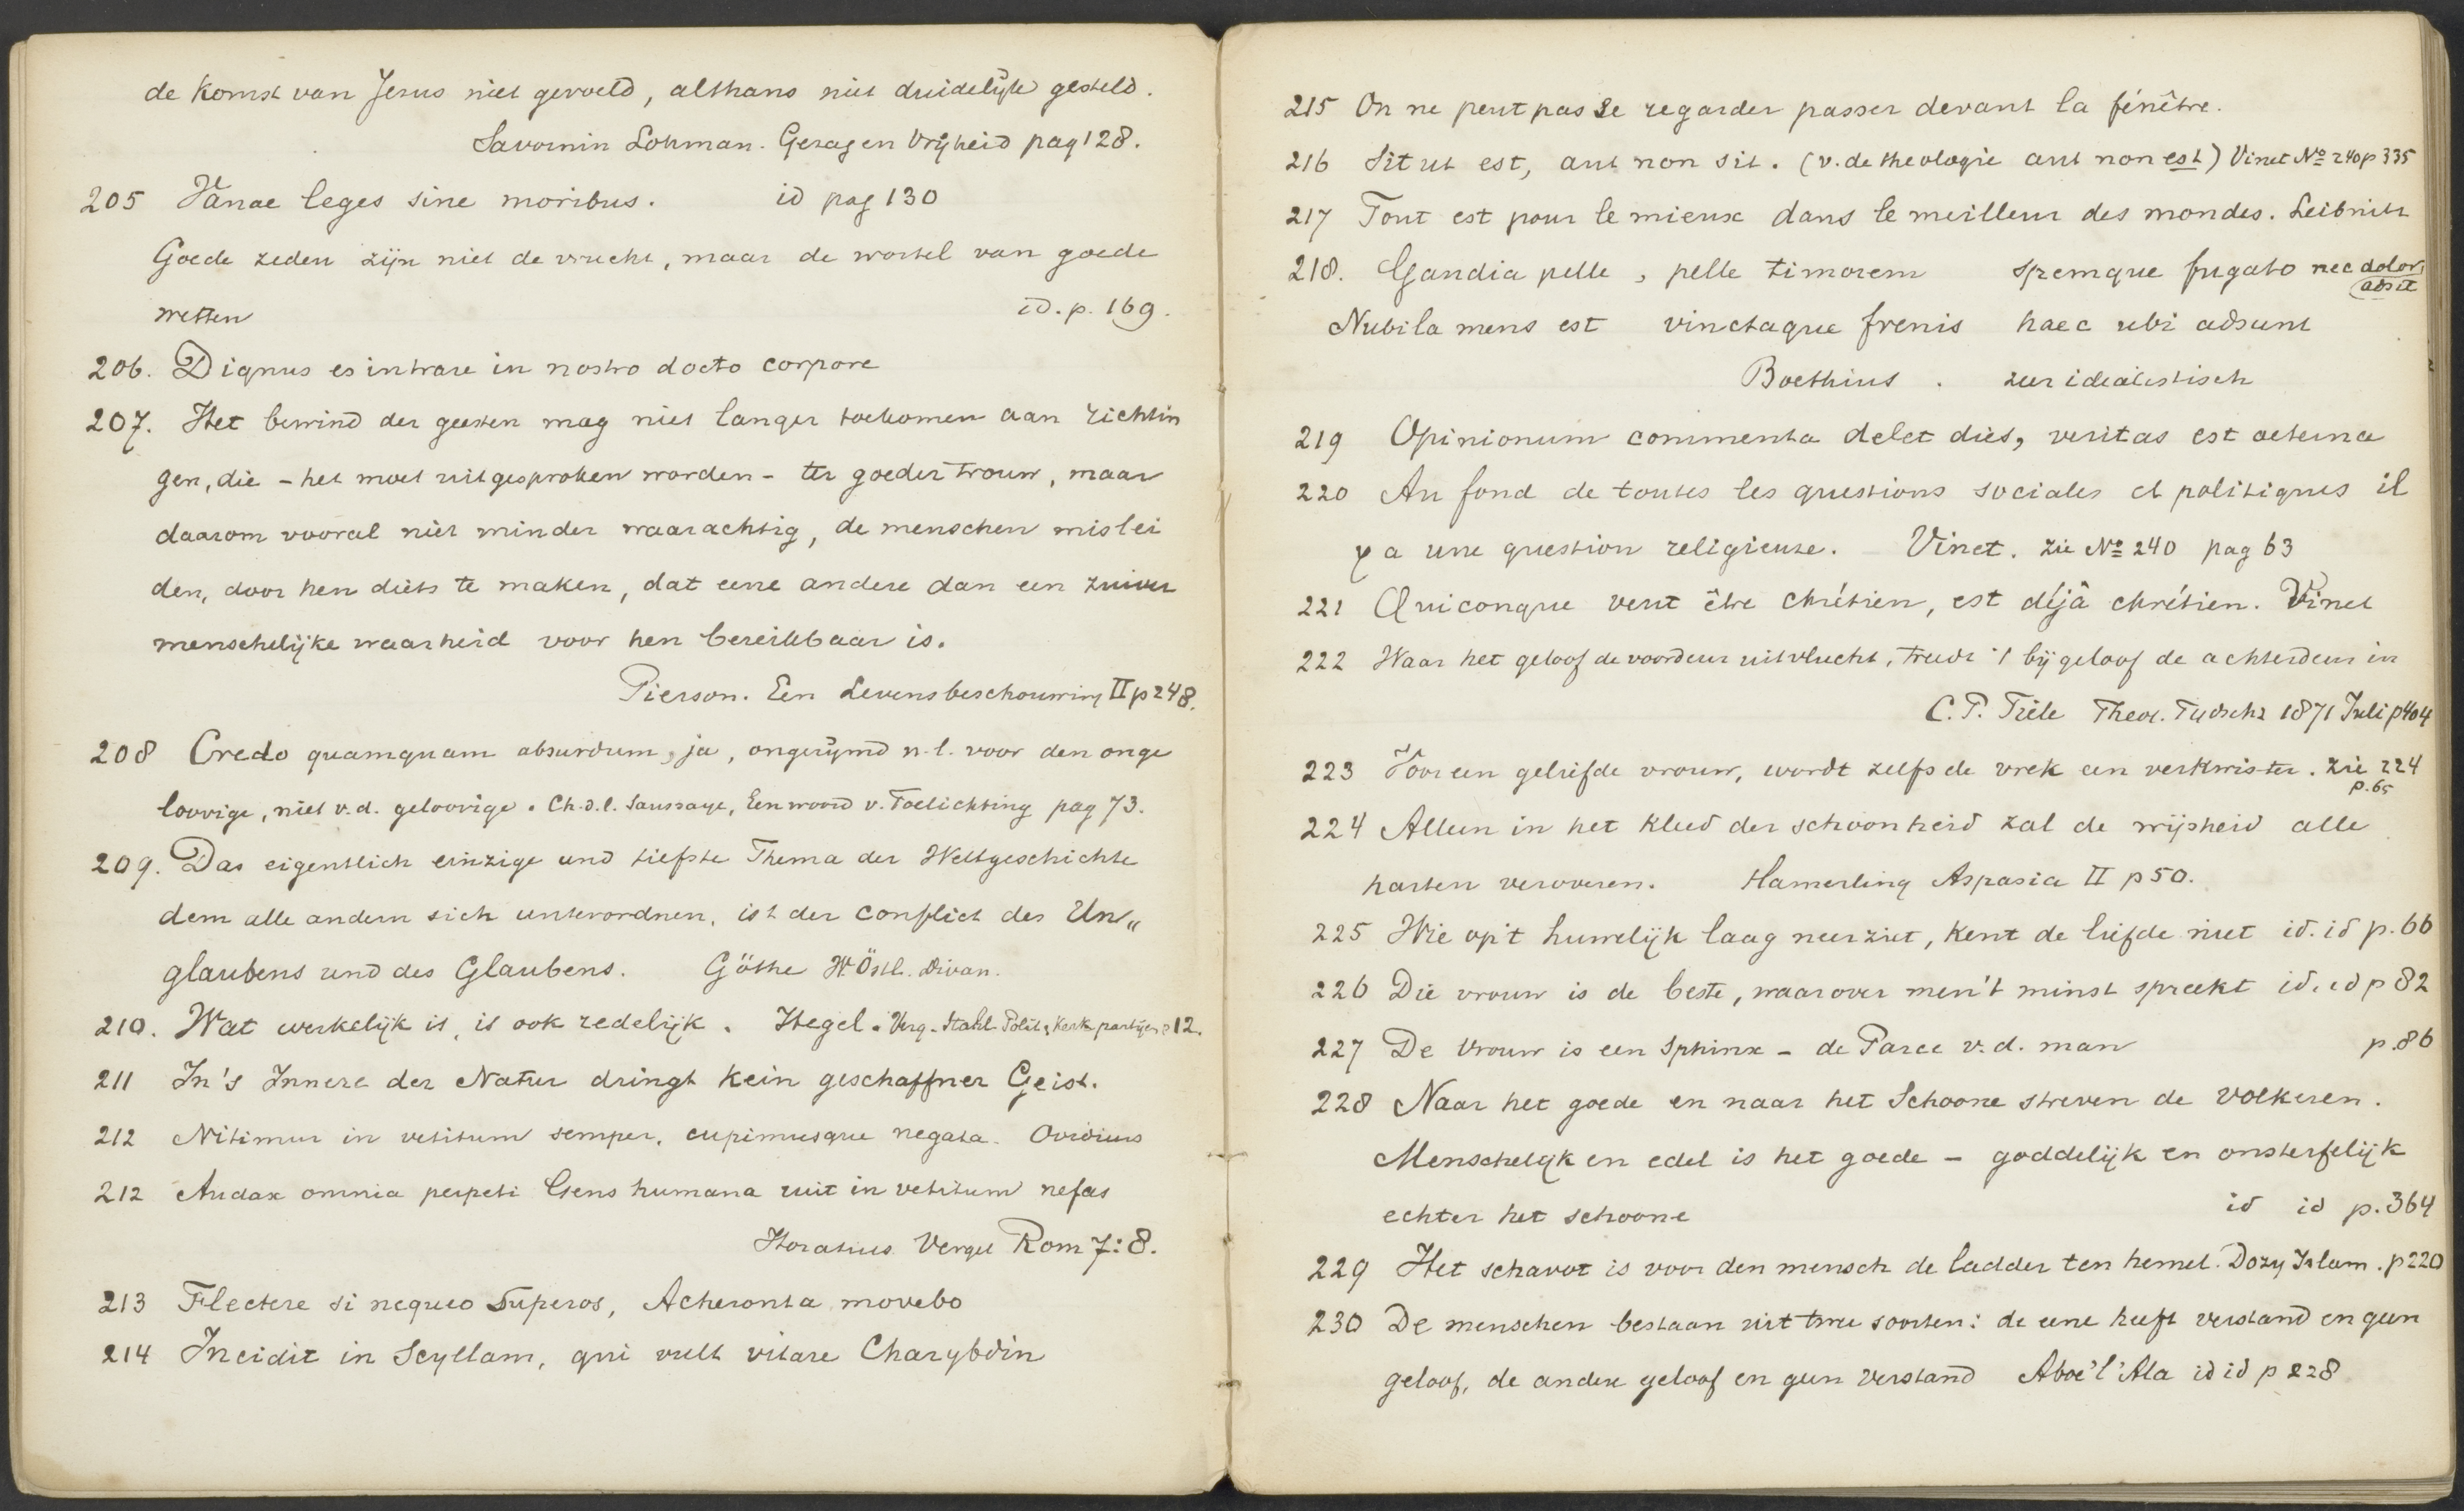 de Komst van Jesus niet gevoeld, althans niet duidelijk gesteld.
Savornin Lohman. Gezag en Vrijheid pag 128.
205 Vanae leges sine moribus. id pag 130
Goede zeden zijn niet de vrucht, maar de wortel van goede
wetten id. p. 169.
206. Dignus es intrare in nostro docto corpore
207. Het bewind der geesten mag niet langer toekomen aan richtin
gen, die - het moet uitgesproken worden - ter goeder trouw, maar
daarom vooral niet minder waarachtig, de menschen mislei
den, door hen diets te maken, dat eene andere dan een zuiver
menschelijke waarheid voor hen bereikbaar is.
Pierson. Een Levensbeschouwing II p 248.
208 Credo quamquam absurdum, ja, ongerijmd n.l. voor den onge
loovige, niet v.d. geloovige. Ch. d. l. Saussaye, Een woord v. Toelichting pag 73.
209. Das eigentlich einzige und tiefste Thema der Weltgeschichte
dem alle andern sich unterordnen, ist der Conflict des Un„
glaubens und des Glaubens. Göthe W. Östl. Divan.
210. Wat werkelijk is, is ook redelijk. Hegel. Verg. Stahl Polit. Kerk partijen p 12.
211 In's Innere der Natur dringt kein geschaffner Geist.
212 Nitimur in vetitum semper, cupimusque negata. Ovidius
212 Audax omnia perpeti Gens humana ruit in vetitum nefas
Horatius. Vergel Rom 7:8.
213 Flectere si nequeo Superos, Acheronta movebo
214 Incidit in Scyllam, qui vult vitare Charybdin
215 On ne peut pas se regarder passer devant la fénêtre.
216 Sit ut est, aut non sit. (v. de theologie aut non est) Vinet No 240 p 335
217 Tout est pour le mieux dans le meilleur des mondes. Leibnitz
218. Gaudia pelle, pelle timorem spemque fugato nec dolor
adsit
Nubila mens est vinctaque frenis haec ubi adsunt
Boethius. zeer idealistisch
219 Opinionum commenta delet dies, veritas est aeterna
220 Au fond de toutes les questions sociales et politiques il
y a une question religieuse. Vinet. zie No 240 pag 63
221 Quiconque veut être chrétien, est déjà chrétien. Vinet
222 Waar het geloof de voordeur uitvlucht, treedt 't bijgeloof de achterdeur in
C. P. Tiele Theol. Tijdschr 1871 Juli p 404
223 Voor een geliefde vrouw, wordt zelfs de vrek een verkwister. zie 224
p. 65
224 Alleen in het kleed der schoonheid zal de wijsheid alle
harten veroveren. Hamerling Aspasia II p 50.
225 Wie op't huwelijk laag neerziet, kent de liefde niet id. id p. 66
226 Die vrouw is de beste, waarover men 't minst spreekt id. id p 82
227 De Vrouw is een Sphinx - de Parce v. d. man p. 86
228 Naar het goede en naar het Schoone streven de volkeren.
Menschelijk en edel is het goede - goddelijk en onsterfelijk
echter het schoone id id p. 364
229 Het schavot is voor den mensch de ladder ten hemel. Dozy Islam. p 220
230 De menschen bestaan uit twee soorten: de eene heeft verstand en geen
geloof, de andere geloof en geen verstand Aboe'l'Ala id id p 228